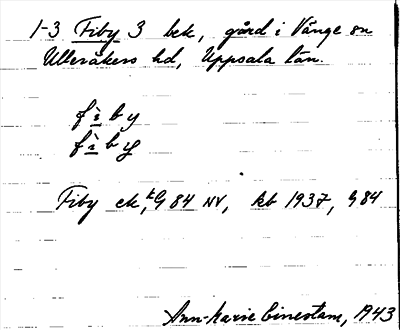 1-3 Fiby 3 bek, gård i Vänge sn
Ulleråkers hd, Uppsala län.
fìby
fìby
Fiby ek, G 84 NV, kb 1937, G 84
Ann-Marie Cinestam, 1943